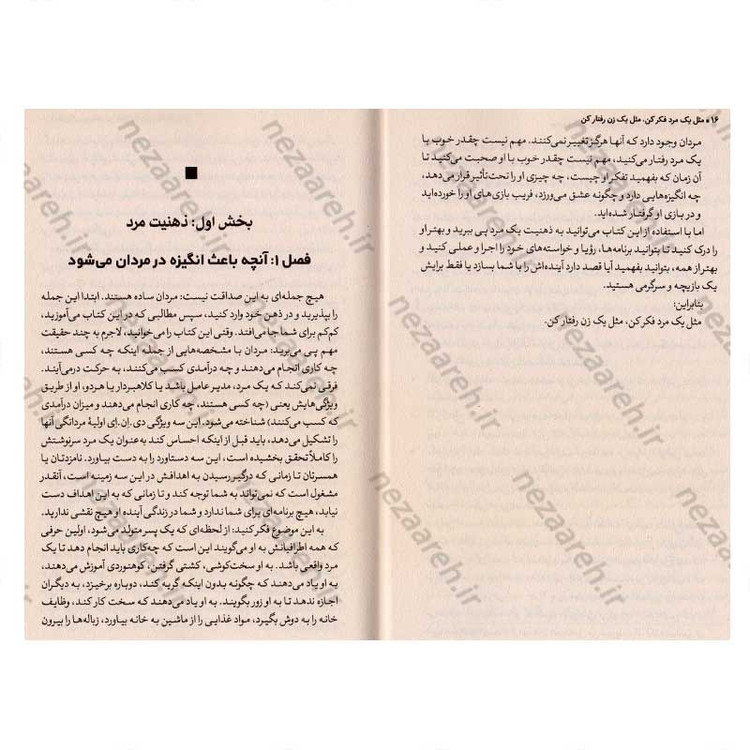 ۱۶ * مثل یک مرد فکر کن، مثل یک زن رفتار کن
مردان وجود دارد که آنها هرگز تغییر نمی‌کنند. مهم نیست چقدر خوب با
یک مرد رفتار می‌کنید، مهم نیست چقدر خوب با او صحبت می‌کنید تا
آن زمان که بفهمید تفکر او چیست، چه چیزی او را تحت‌تأثیر قرار می‌دهد،
چه انگیزه‌هایی دارد و چگونه عشق می‌ورزد، فریب بازی‌های او را خورده‌اید
و در بازی او گرفتار شده‌اید.
اما با استفاده از این کتاب می‌توانید به ذهنیت یک مرد پی ببرید و بهتر او
را درک کنید تا بتوانید برنامه‌ها، رؤیا و خواسته‌های خود را اجرا و عملی کنید و
بهتر از همه، بتوانید بفهمید آیا قصد دارد آینده‌اش را با شما بسازد یا فقط برایش
یک بازیچه و سرگرمی هستید.
بنابراین:
مثل یک مرد فکر کن، مثل یک زن رفتار کن.
بخش اول: ذهنیت مرد
فصل ۱: آنچه باعث انگیزه در مردان می‌شود
هیچ جمله‌ای به این صداقت نیست: مردان ساده هستند. ابتدا این جمله
را بپذیرید و در ذهن خود وارد کنید، سپس مطالبی که در این کتاب می‌آموزید،
کم‌کم برای شما جا می‌افتد. وقتی این کتاب را می‌خوانید، لاجرم به چند حقیقت
مهم پی می‌برید: مردان با مشخصه‌هایی از جمله اینکه چه کسی هستند،
چه کاری انجام می‌دهند و چه درآمدی کسب می‌کنند، به حرکت درمی‌آیند.
فرقی نمی‌کند که یک مرد، مدیر عامل باشد یا کلاهبردار یا هردو، او از طریق
ویژگی‌هایش یعنی (چه کسی هستند، چه کاری انجام می‌دهند و میزان درآمدی
که کسب می‌کنند) شناخته می‌شود. این سه ویژگی دی.اِن.اِی اولیهٔ مردانگی آنها
را تشکیل می‌دهد، باید قبل از اینکه احساس کند به‌عنوان یک مرد سرنوشتش
را کاملاً تحقق بخشیده است، این سه دستاورد را به دست بیاورد. نامزدتان یا
همسرتان تا زمانی که درگیر رسیدن به اهدافش در این سه زمینه است، آنقدر
مشغول است که نمی‌تواند به شما توجه کند و تا زمانی که به این اهداف دست
نیابد، هیچ برنامه‌ای برای شما ندارد و شما در زندگی آینده او هیچ نقشی ندارید.
به این موضوع فکر کنید: از لحظه‌ای که یک پسر متولد می‌شود، اولین حرفی
که همه اطرافیانش به او می‌گویند این است که چه‌کاری باید انجام دهد تا یک
مرد واقعی باشد. به او سخت‌کوشی، کشتی گرفتن، کوهنوردی آموزش می‌دهند،
به او یاد می‌دهند که چگونه بدون اینکه گریه کند، دوباره برخیزد، به دیگران
اجازه ندهد تا به او زور بگویند. به او یاد می‌دهند که سخت کار کند، وظایف
خانه را به دوش بگیرد، مواد غذایی را از ماشین به خانه بیاورد، زباله‌ها را بیرون
nezaareh.ir
nezaareh.ir
nezaareh.ir
nezaareh.ir
nezaareh.ir
nezaareh.ir
nezaareh.ir
nezaareh.ir